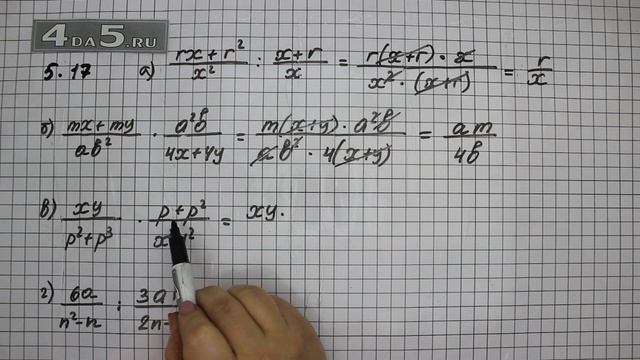 4DA5.RU
5.17 а) (rx + r²)/x² : (x + r)/x = (r(x + r) · x)/(x² · (x + r)) = r/x
б) (mx + my)/(ab²) · (a²b)/(4x + 4y) = (m(x + y) · a²b)/(ab² · 4(x + y)) = am/4b
в) xy/(p² + p³) · (p + p²)/ = xy ·
г) 6a/(n² - n) :